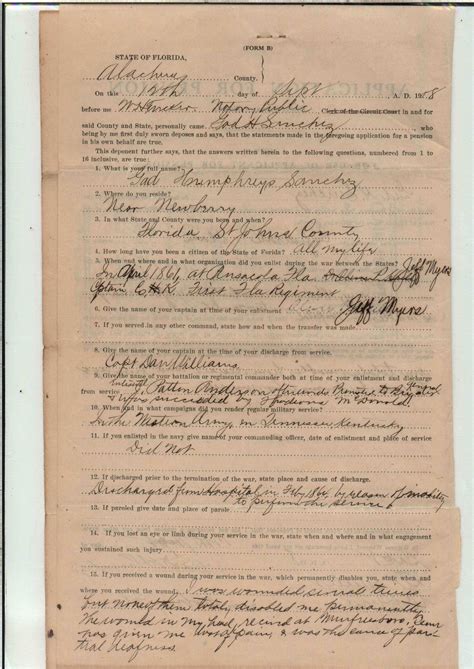 (FORM B)
STATE OF FLORIDA,
Alachua County.
On this 12th day of Sept A. D. 1908
before me Notary Public Clerk of the Circuit Court in and for
said County and State, personally came Gad H Sanchez, who
being by me first duly sworn deposes and says, that the statements made in the foregoing application for a pension
in his own behalf are true.
This deponent further says, that the answers written herein to the following questions, numbered from 1 to
16 inclusive, are true:
1. What is your full name?
Gad Humphreys Sanchez
2. Where do you reside?
Near Newberry
3. In what State and County were you born and when?
Florida St Johns County
4. How long have you been a citizen of the State of Florida? All my life
5. When and where and in what organization did you enlist during the war between the States? Jeff Myers
In April 1861 at Pensacola Fla
First Fla Regiment
6. Give the name of your captain at time of your enlistment Jeff Myers
7. If you served in any other command, state how and when the transfer was made.
8. Give the name of your captain at the time of your discharge from service.
Capt Dan Williams
9. Give the name of your battalion or regimental commander both at time of your enlistment and discharge
from service. Patton Anderson afterwards Promoted to
& was succeeded by McDonald
10. When and in what campaigns did you render regular military service?
In the Western Army in Tennessee, Kentucky
11. If you enlisted in the navy give name of your commanding officer, date of enlistment and place of service
Did Not
12. If discharged prior to the termination of the war, state place and cause of discharge.
Discharged from Hospital in Feby 1864, by reason of inability
to perform the service
13. If paroled give date and place of parole.
14. If you lost an eye or limb during your service in the war, state when and where and in what engagement
you sustained such injury.
15. If you received a wound during your service in the war, which permanently disables you, state when and
where you received the wound. I was wounded several times
but none of them totaly disabled me permanently
The wound in my head, received at Murfreesboro, Tenn
has given me most pain, & was the cause of par-
tial deafness.